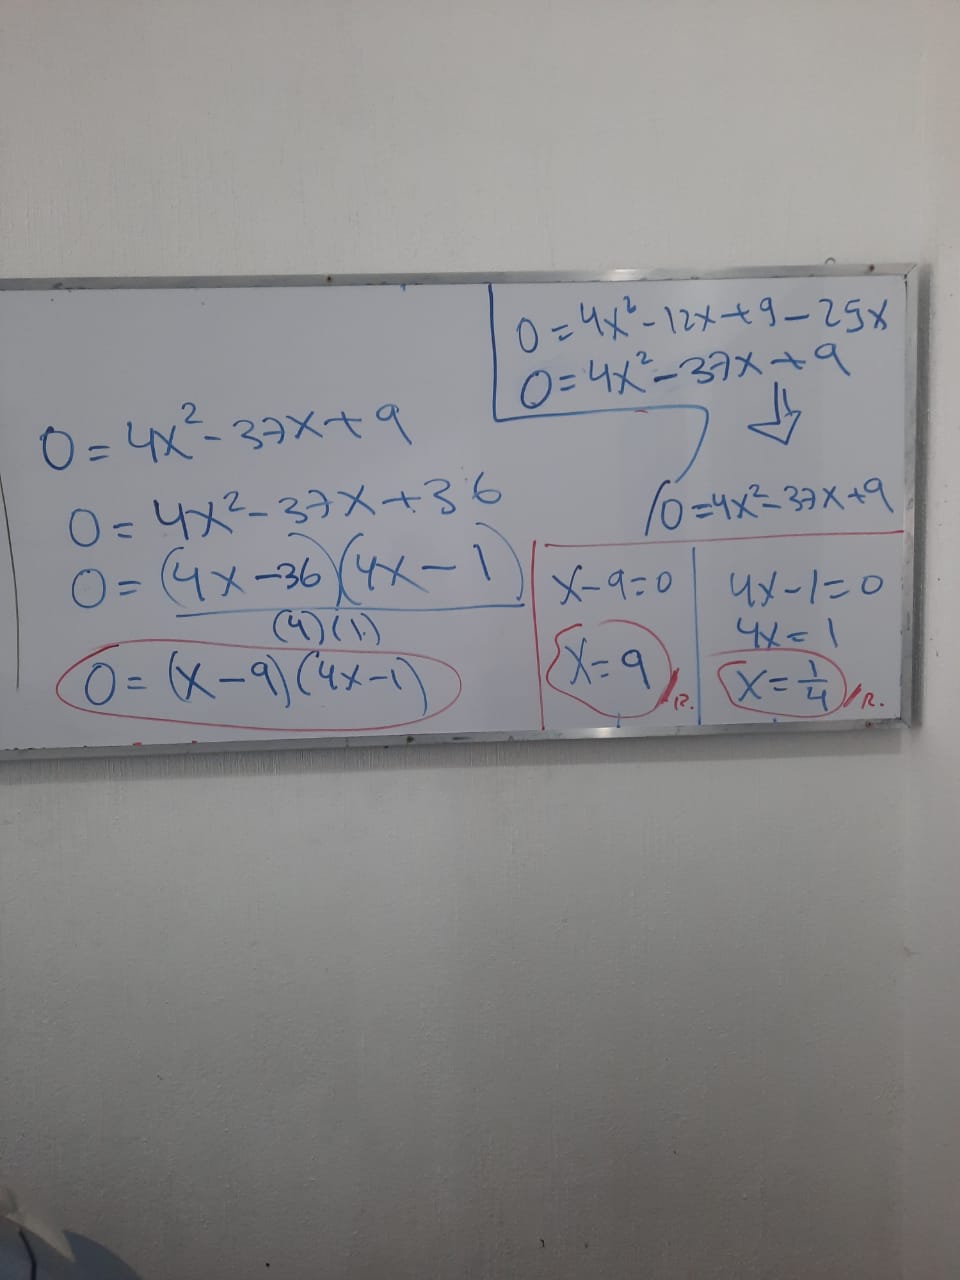 0 = 4x² - 12x + 9 - 25x
0 = 4x² - 37x + 9
0 = 4x² - 37x + 9
0 = 4x² - 37x + 9
0 = 4x² - 37x + 36
0 = (4x - 36)(4x - 1)
(4)(1)
0 = (x - 9)(4x - 1)
x - 9 = 0
x = 9 /R.
4x - 1 = 0
4x = 1
x = 1/4 /R.